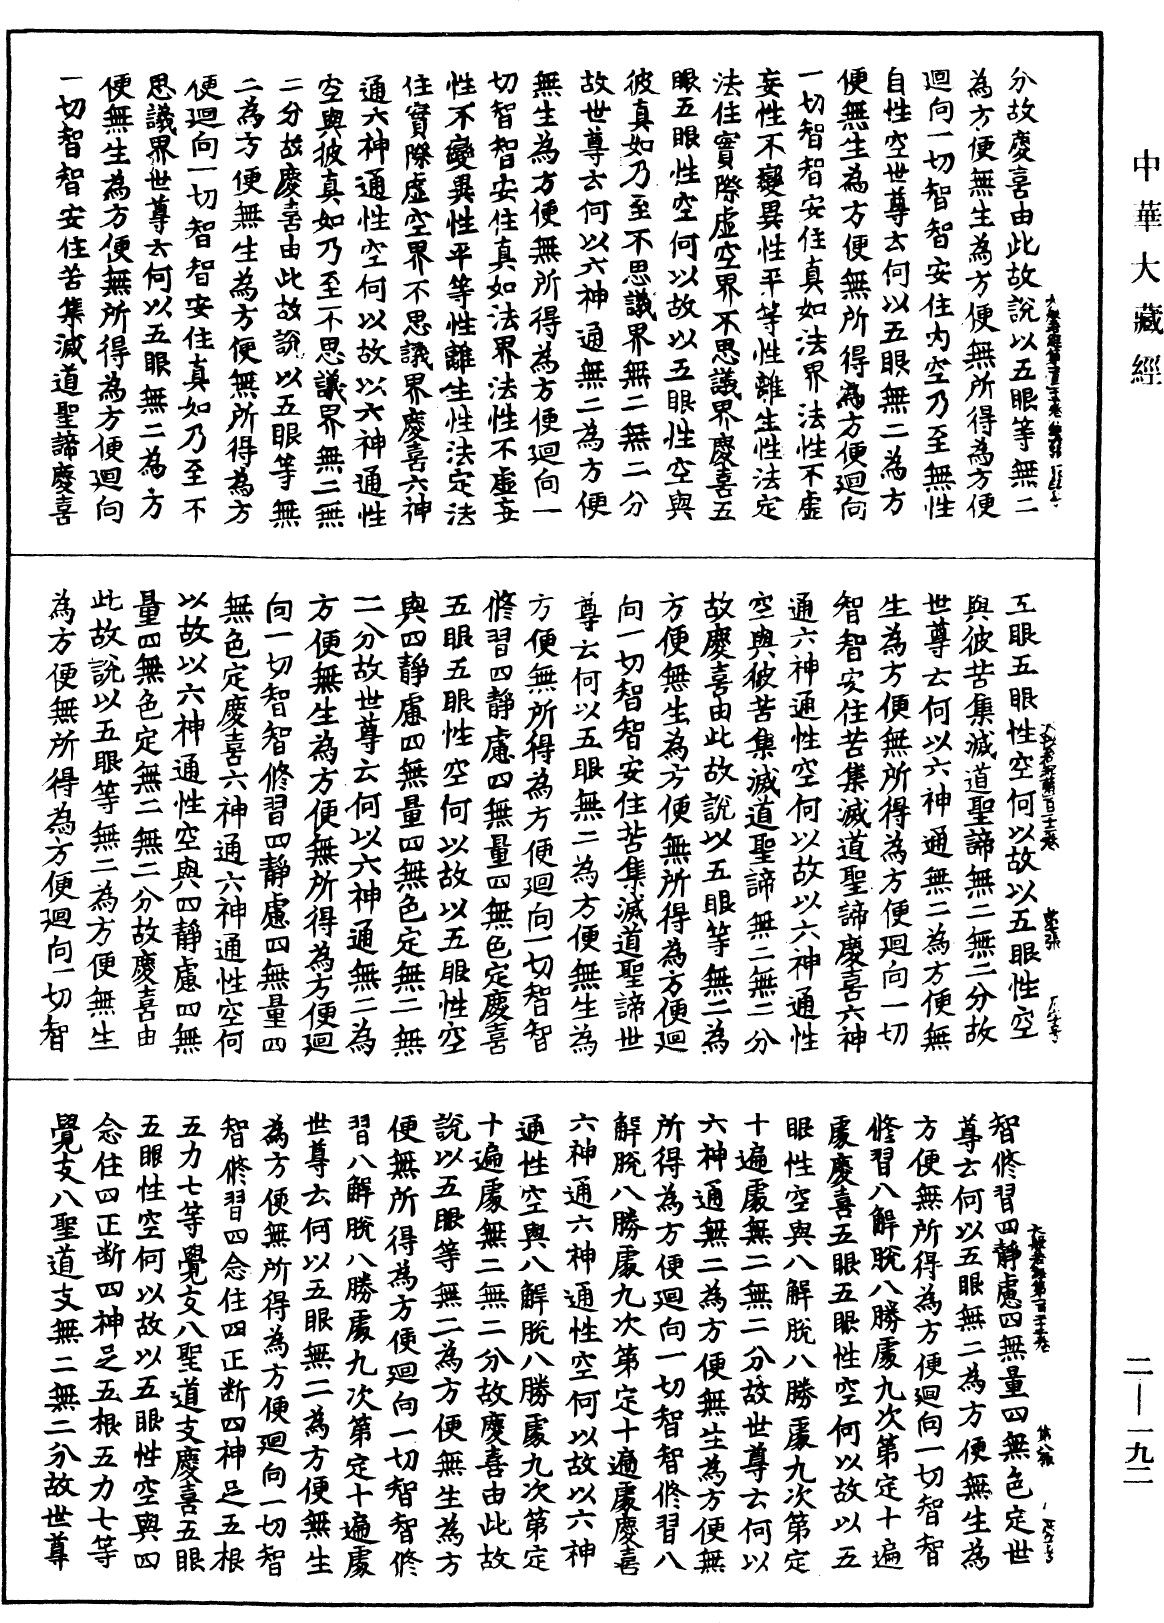 中華大藏經
分故慶喜由此故說以五眼等無二
為方便無生為方便無所得為方便
迴向一切智智安住內空乃至無性
自性空世尊云何以五眼無二為方
便無生為方便無所得為方便迴向
一切智智安住真如法界法性不虛
妄性不變異性平等性離生性法定
法住實際虛空界不思議界慶喜五
眼五眼性空何以故以五眼性空與
彼真如乃至不思議界無二無二分
故世尊云何以六神通無二為方便
無生為方便無所得為方便迴向一
切智智安住真如法界法性不虛妄
性不變異性平等性離生性法定法
住實際虛空界不思議界慶喜六神
通六神通性空何以故以六神通性
空與彼真如乃至不思議界無二無
二分故慶喜由此故說以五眼等無
二為方便無生為方便無所得為方
便迴向一切智智安住真如乃至不
思議界世尊云何以五眼無二為方
便無生為方便無所得為方便迴向
一切智智安住苦集滅道聖諦慶喜
五眼五眼性空何以故以五眼性空
與彼苦集滅道聖諦無二無二分故
世尊云何以六神通無二為方便無
生為方便無所得為方便迴向一切
智智安住苦集滅道聖諦慶喜六神
通六神通性空何以故以六神通性
空與彼苦集滅道聖諦無二無二分
故慶喜由此故說以五眼等無二為
方便無生為方便無所得為方便迴
向一切智智安住苦集滅道聖諦世
尊云何以五眼無二為方便無生為
方便無所得為方便迴向一切智智
修習四靜慮四無量四無色定慶喜
五眼五眼性空何以故以五眼性空
與四靜慮四無量四無色定無二無
二分故世尊云何以六神通無二為
方便無生為方便無所得為方便迴
向一切智智修習四靜慮四無量四
無色定慶喜六神通六神通性空何
以故以六神通性空與四靜慮四無
量四無色定無二無二分故慶喜由
此故說以五眼等無二為方便無生
為方便無所得為方便迴向一切智
智修習四靜慮四無量四無色定世
尊云何以五眼無二為方便無生為
方便無所得為方便迴向一切智智
修習八解脫八勝處九次第定十遍
處慶喜五眼五眼性空何以故以五
眼性空與八解脫八勝處九次第定
十遍處無二無二分故世尊云何以
六神通無二為方便無生為方便無
所得為方便迴向一切智智修習八
解脫八勝處九次第定十遍處慶喜
六神通六神通性空何以故以六神
通性空與八解脫八勝處九次第定
十遍處無二無二分故慶喜由此故
說以五眼等無二為方便無生為方
便無所得為方便迴向一切智智修
習八解脫八勝處九次第定十遍處
世尊云何以五眼無二為方便無生
為方便無所得為方便迴向一切智
智修習四念住四正斷四神足五根
五力七等覺支八聖道支慶喜五眼
五眼性空何以故以五眼性空與四
念住四正斷四神足五根五力七等
覺支八聖道支無二無二分故世尊
二—一九二